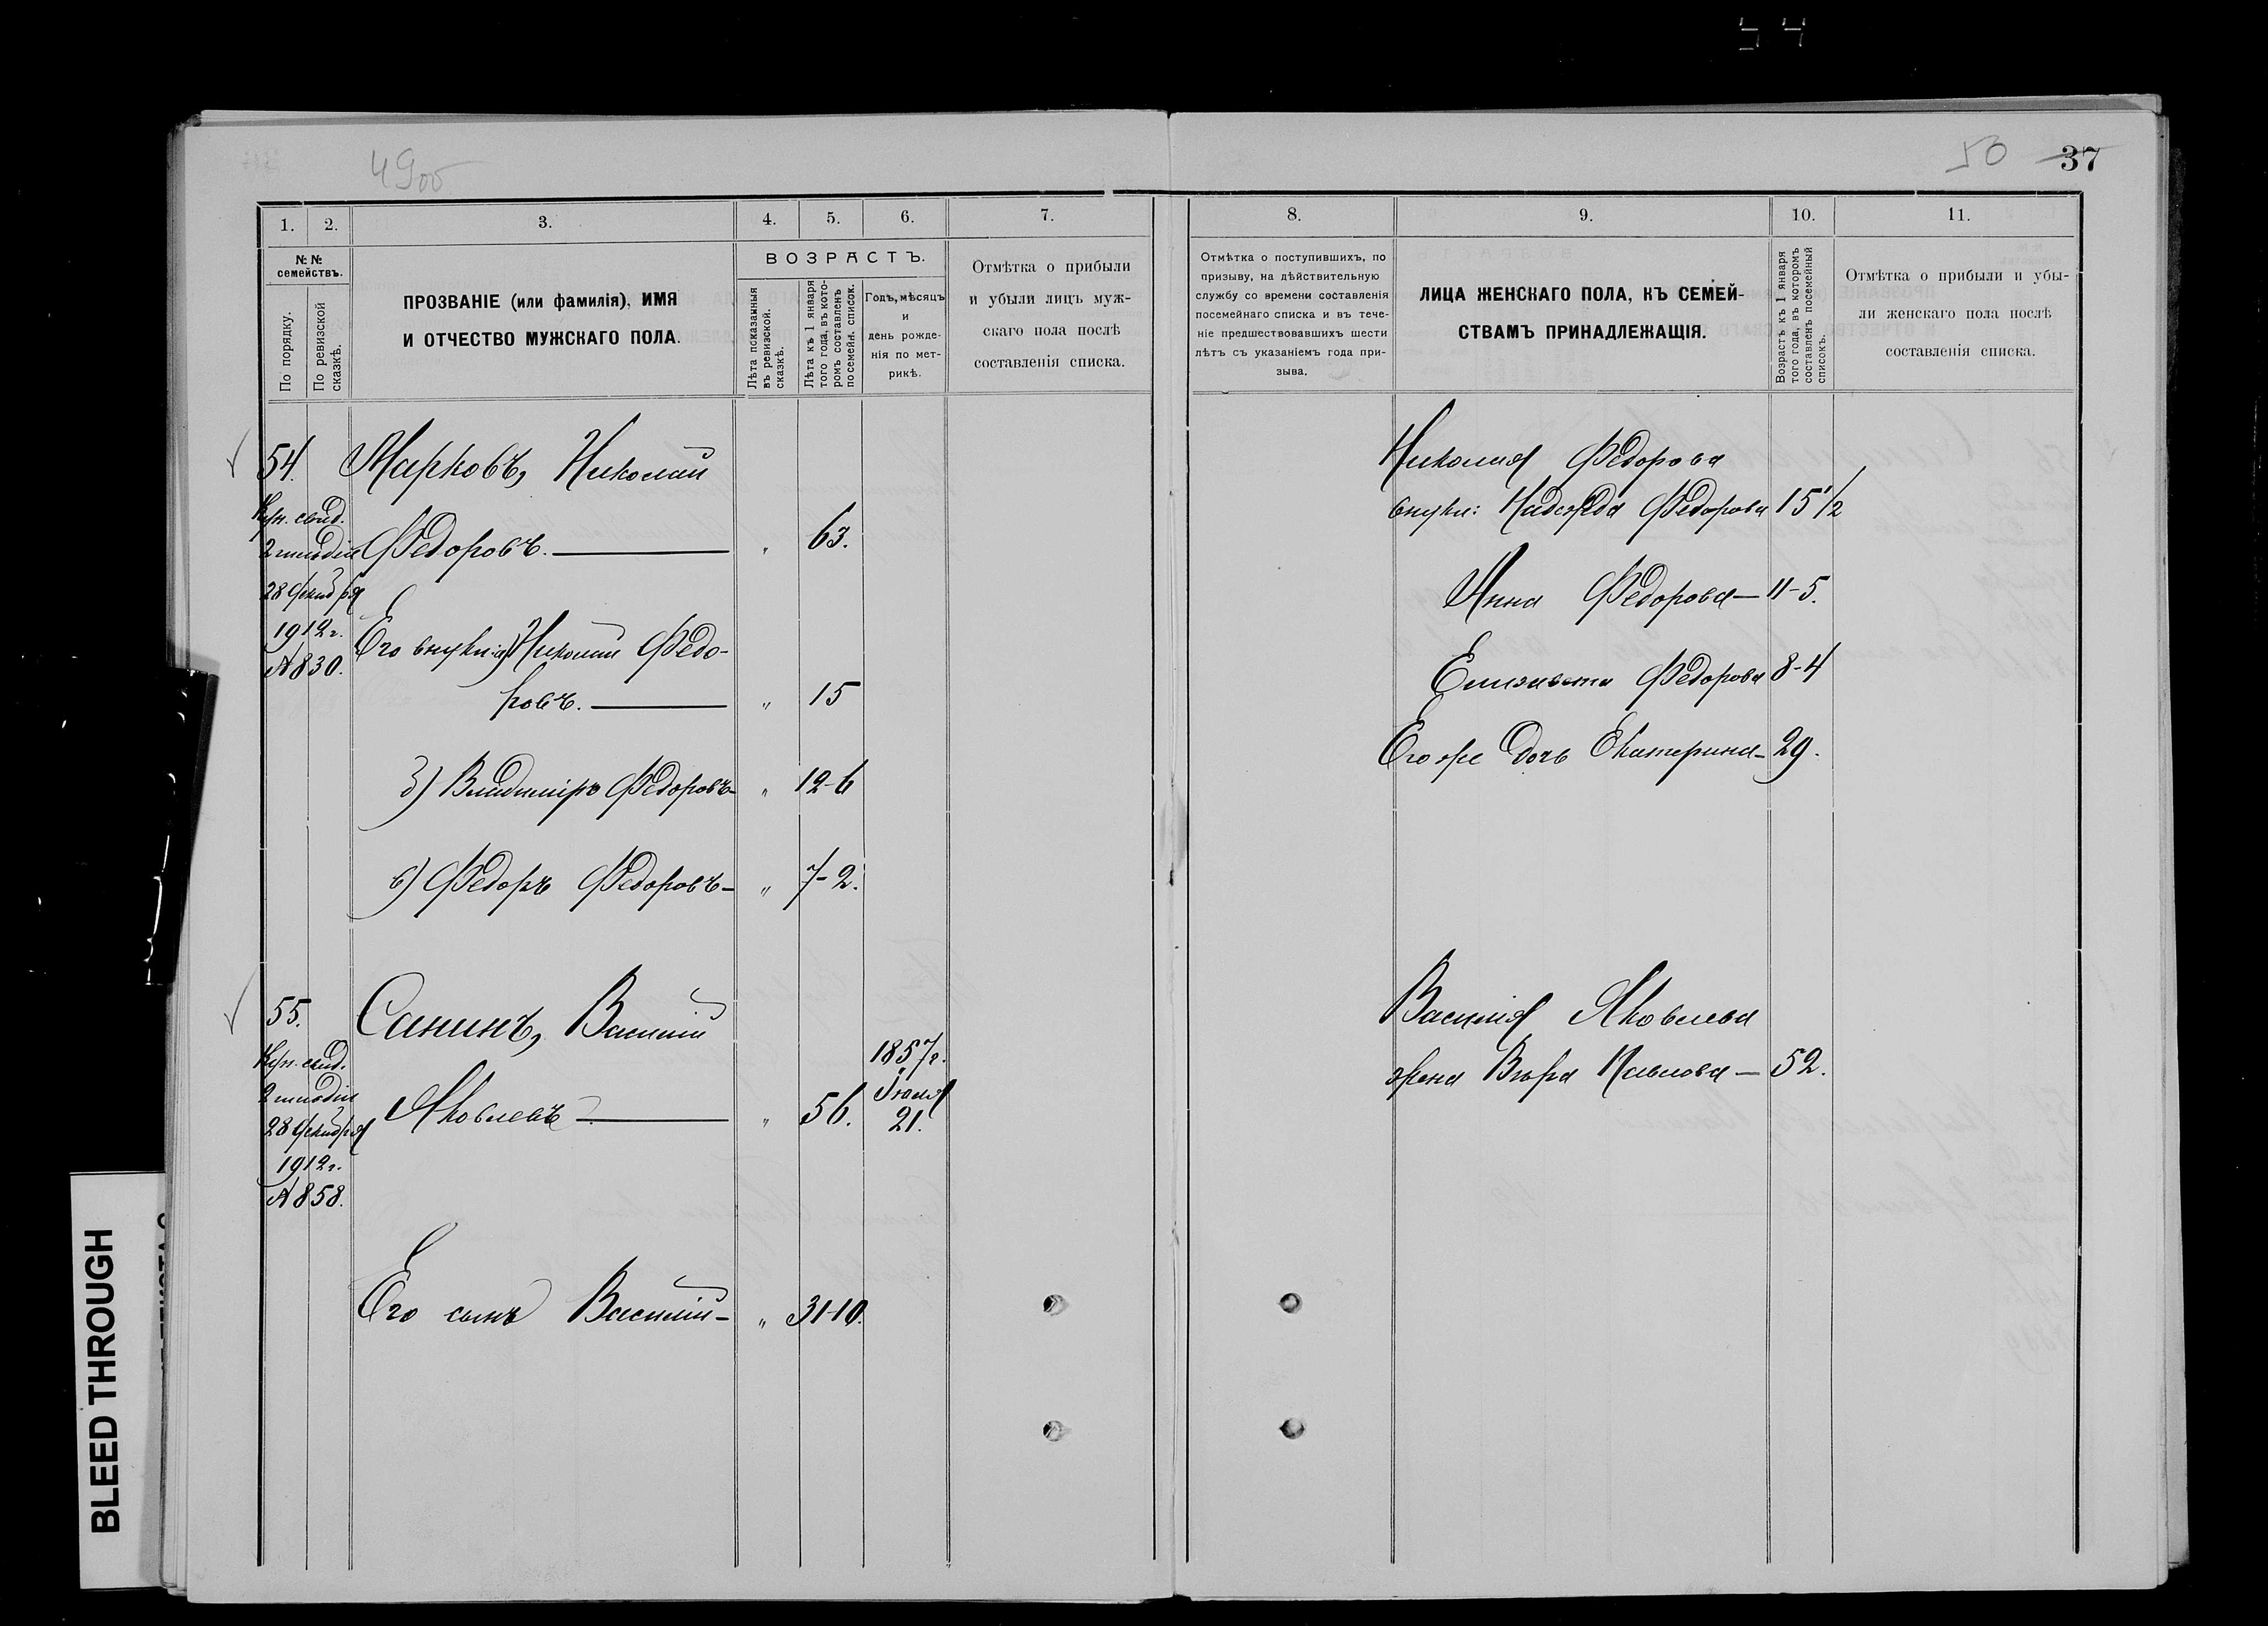 54
49об
50 37
1. 2. 3. 4. 5. 6. 7.
№№ семействъ.
По порядку.
По ревизской сказкѣ.
ПРОЗВАНІЕ (или фамилія), ИМЯ
И ОТЧЕСТВО МУЖСКАГО ПОЛА.
ВОЗРАСТЪ.
Лѣта показанныя въ ревизской сказкѣ.
Лѣта къ 1 января того года, въ которомъ составленъ посемейн. списокъ.
Годъ, мѣсяцъ
и
день рожде-
нія по мет-
рикѣ.
Отмѣтка о прибыли
и убыли лицъ муж-
скаго пола послѣ
составленія списка.
54. Марковъ, Николай
Куп. свид.
2 гильдіи Федоровъ. — " 63.
28 Декабря
1912 г.
№ 830.
Его внуки: а) Николай Федо-
ровъ. — " 15
б) Владиміръ Федоровъ — " 12-6
в) Федоръ Федоровъ — " 7-2.
55. Санинъ, Василій
Куп. свид.
2 гильдіи
28 Декабря
1912 г.
№ 858.
Яковлевъ — " 56. 1857 г. Іюля 21.
Его сынъ Василій — " 31-10.
8. 9. 10. 11.
Отмѣтка о поступившихъ, по
призыву, на дѣйствительную
службу со времени составленія
посемейнаго списка и въ тече-
ніе предшествовавшихъ шести
лѣтъ съ указаніемъ года при-
зыва.
ЛИЦА ЖЕНСКАГО ПОЛА, КЪ СЕМЕЙ-
СТВАМЪ ПРИНАДЛЕЖАЩІЯ.
Возрастъ къ 1 января того года, въ которомъ составленъ посемейный списокъ.
Отмѣтка о прибыли и убы-
ли женскаго пола послѣ
составленія списка.
Николая Федорова
внуки: Надежда Федорова 15 1/2
Анна Федорова — 11-5.
Елизавета Федорова 8-4
Его же дочь Екатерина — 29.
Василія Яковлева
жена Вѣра Павлова — 52.
BLEED THROUGH